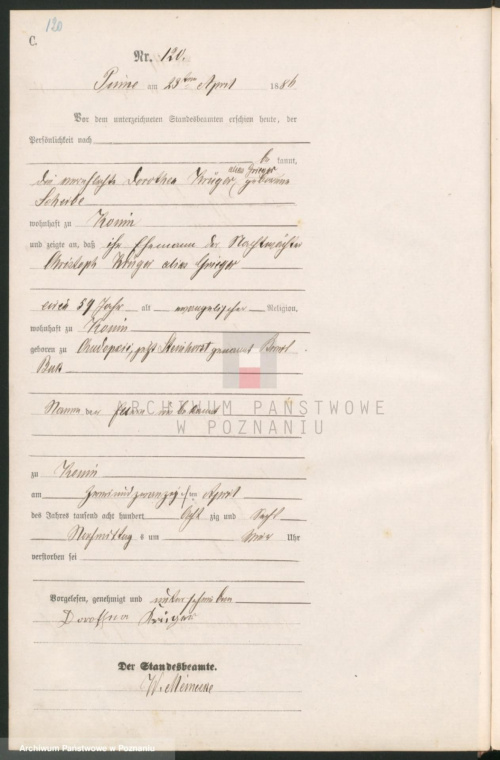 120
C.
Nr. 120.
Pinne am 23ten April 1886
Vor dem unterzeichneten Standesbeamten erschien heute, der
Persönlichkeit nach
be kannt,
die verehelichte Dorothea Krüger alias Grieger geborene
Scheibe
wohnhaft zu Konin
und zeigte an, daß ihr Ehemann der Nachtwächter
Christoph Krüger alias Grieger
circa 59 Jahr alt evangelischer Religion,
wohnhaft zu Konin
geboren zu jetzt genannt
Namen der Eltern unbekannt
zu Konin
am zwei und zwanzigsten April
des Jahres tausend acht hundert Acht zig und Sechs
Nachmittag s um vier Uhr
verstorben sei
Vorgelesen, genehmigt und unterschrieben
Dorothea Krüger
Der Standesbeamte.
W. Meinecke
ARCHIWUM PAŃSTWOWE
W POZNANIU
Archiwum Państwowe w Poznaniu